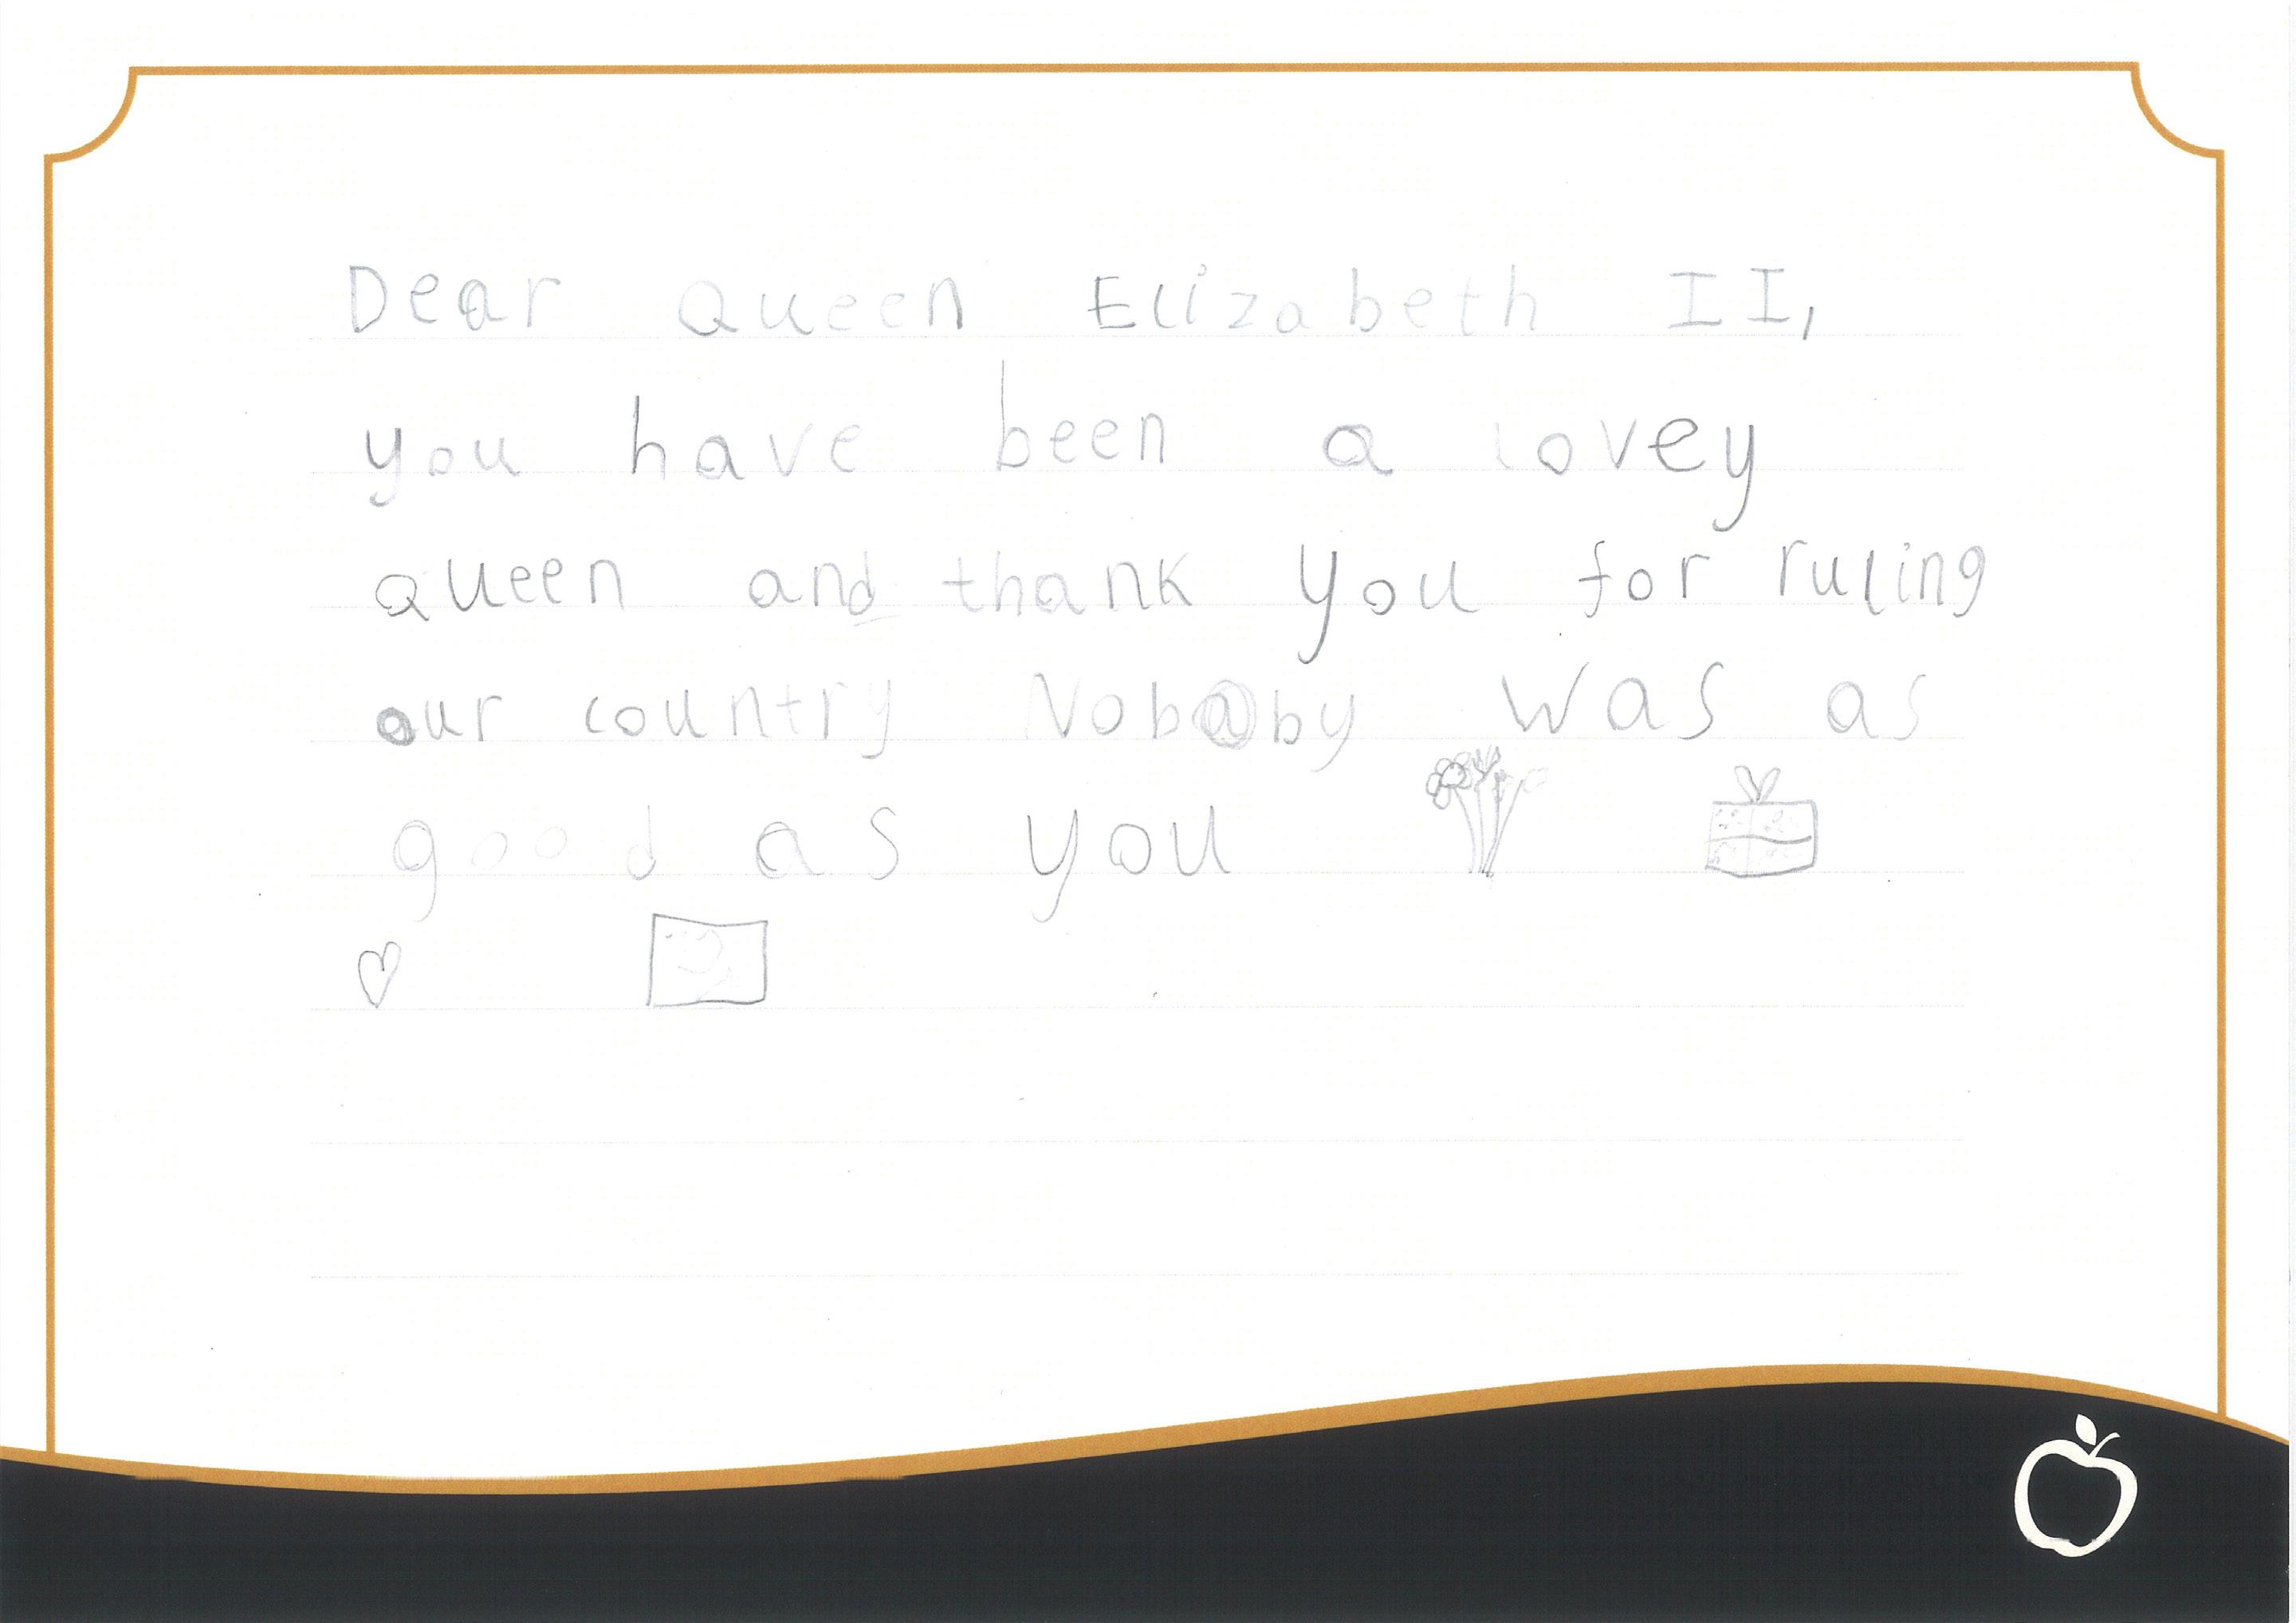 Dear Queen Elizabeth II,
you have been a lovey
queen and thank you for ruling
our country Nobaby was as
good as you